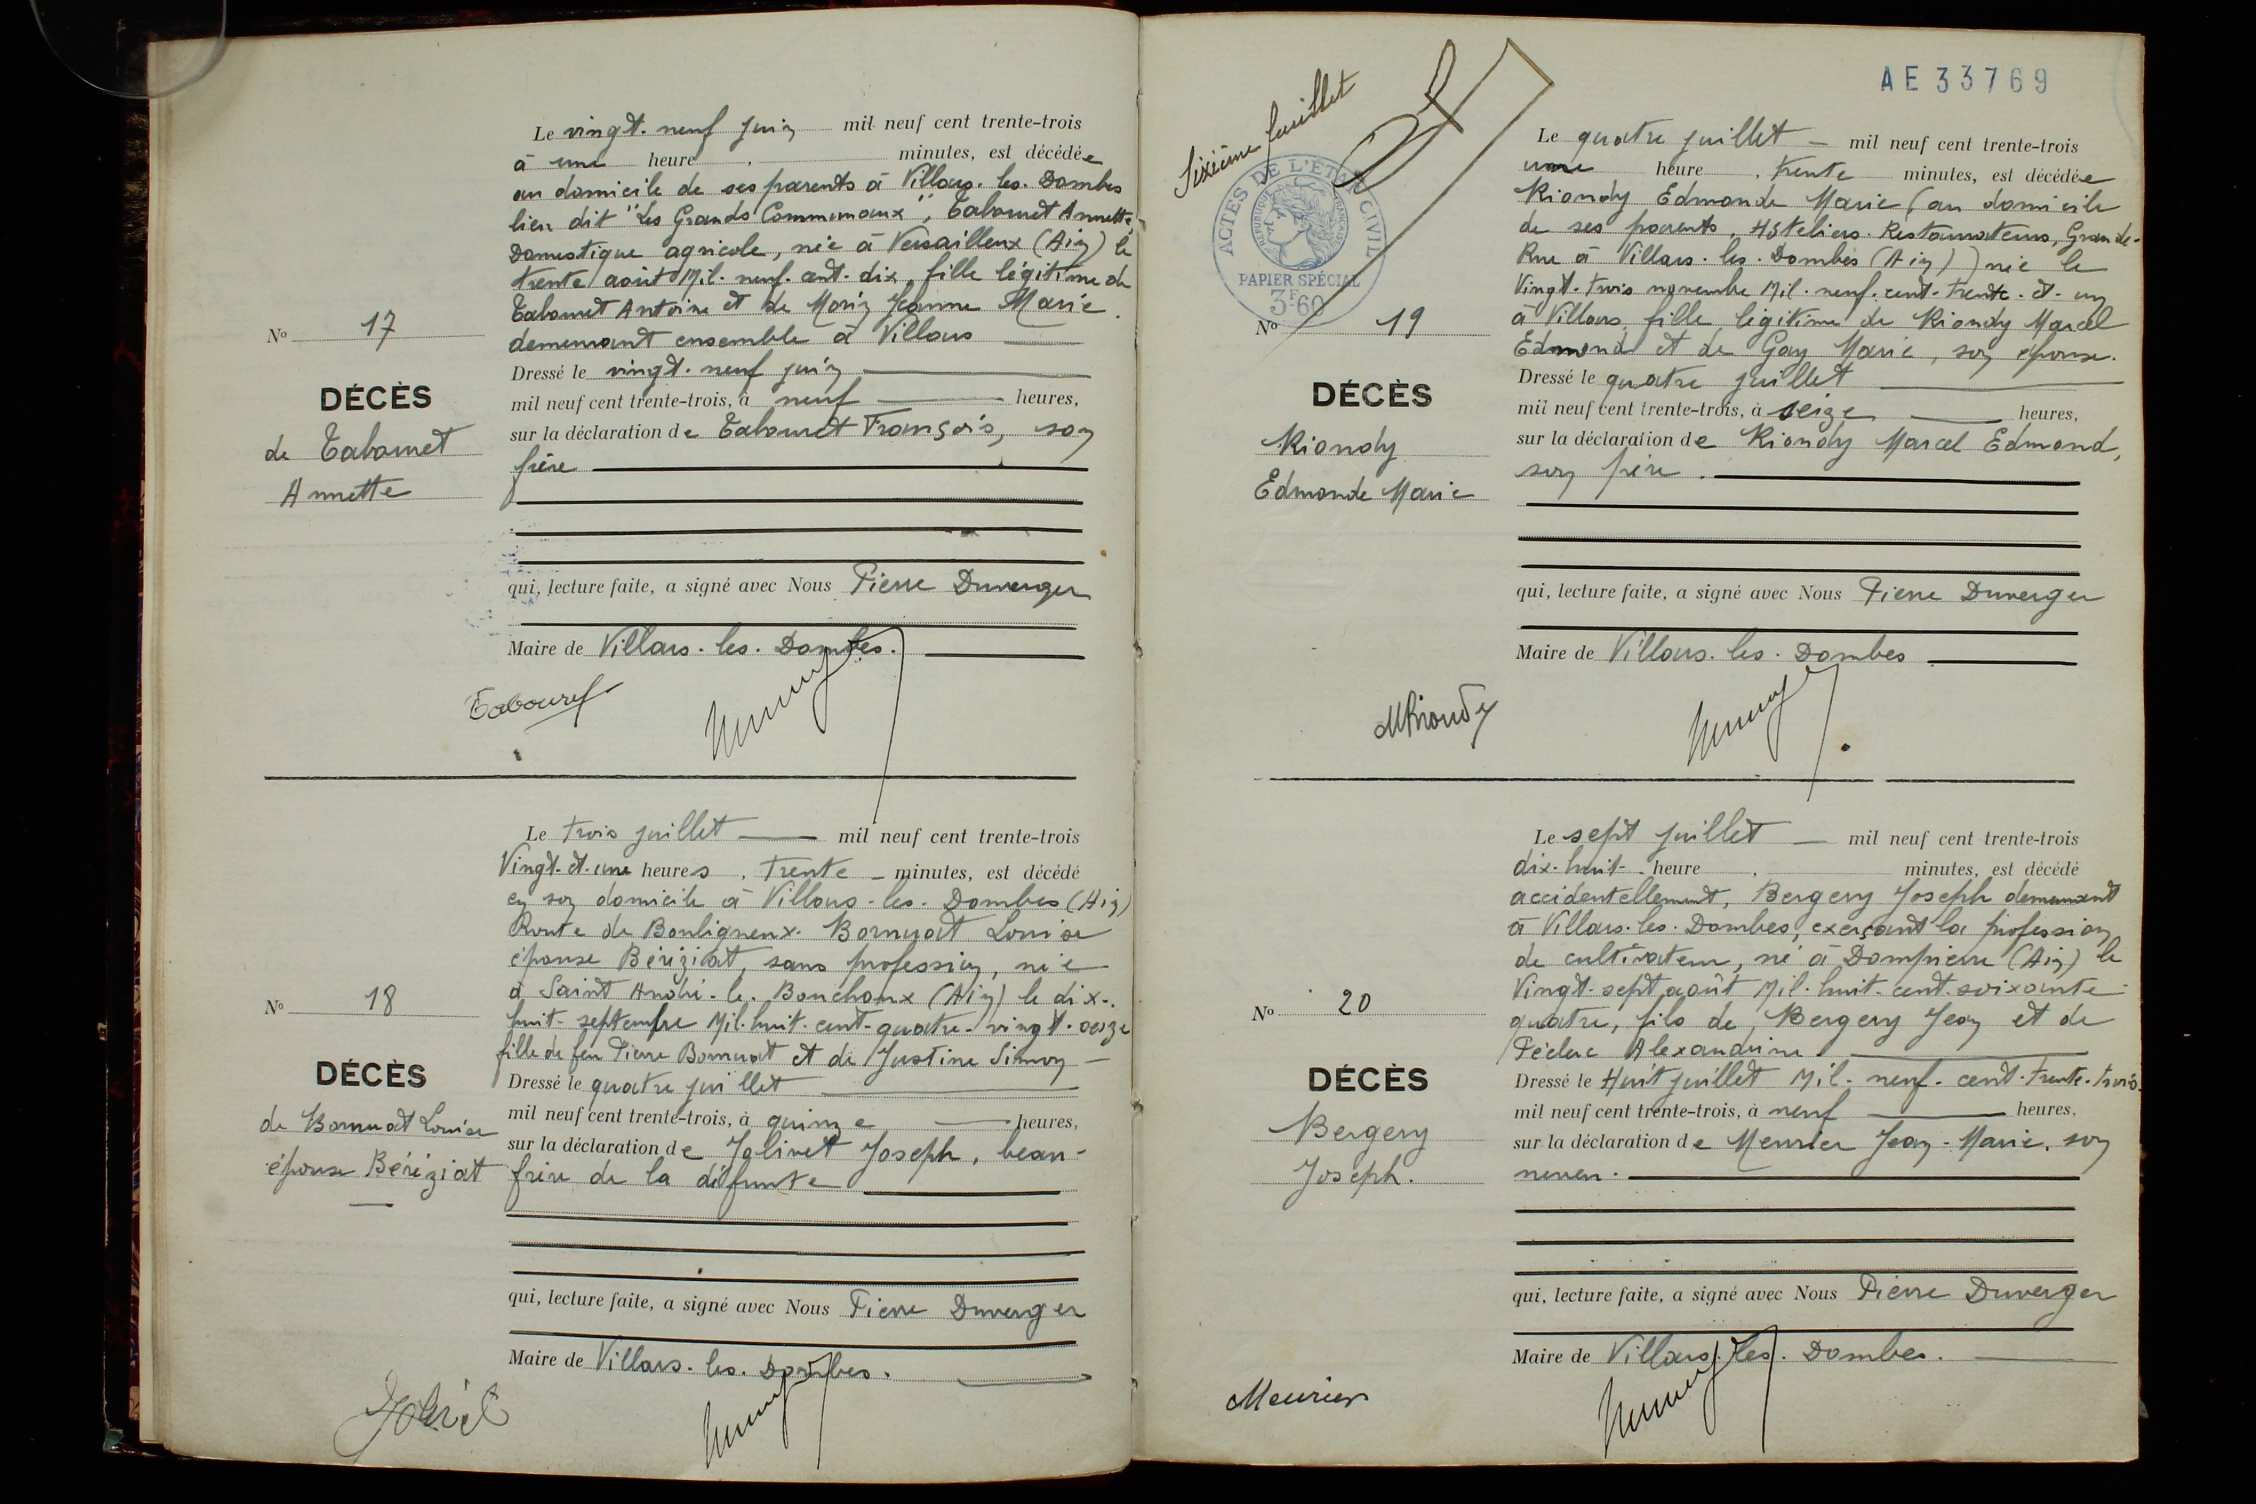 Le vingt. neuf juin mil neuf cent trente-trois
à une heure . minutes, est décédée
au domicile de ses parents à Villars. les. Dombes
lieu dit "Les Grands Communaux", Tabouret Annette,
Domestique agricole, née à Versailleux (Ain) le
trente août Mil. neuf. cent. dix, fille légitime de
Tabouret Antoine et de Morin Jeanne Marie.
demeurant ensemble à Villars
Dressé le vingt. neuf juin
mil neuf cent trente-trois, à neuf heures,
sur la déclaration de Tabouret François, son
frère
qui, lecture faite, a signé avec Nous Pierre Duverger
Maire de Villars. les. Dombes.
Tabouret
No 17
DÉCÈS
de Tabouret
Annette
Le trois juillet mil neuf cent trente-trois
Vingt. et. une heures . trente minutes, est décédé
en son domicile à Villars. les. Dombes (Ain)
Route de Bouligneux. Bornuat Louise
épouse Béréziat, sans profession, née
à Saint André. le. Bouchoux (Ain) le dix-
huit septembre Mil. huit. cent. quatre. vingt. seize
fille de feu Pierre Bornuat et de Justine Simon
Dressé le quatre juillet
mil neuf cent trente-trois, à quinze heures,
sur la déclaration de Jolivet Joseph, beau-
frère de la défunte
qui, lecture faite, a signé avec Nous Pierre Duverger
Maire de Villars. les. Dombes.
Jolivet
No 18
DÉCÈS
de Bornuat Louise
épouse Béréziat
AE 33769
Sixième feuillet
ACTES DE L'ETAT CIVIL
REPUBLIQUE FRANÇAISE
PAPIER SPÉCIAL
3F60
Le quatre juillet mil neuf cent trente-trois
une heure . trente minutes, est décédée
Riondy Edmonde Marie (au domicile
de ses parents, Hôteliers. Restaurateurs, Grande-
Rue à Villars. les. Dombes (Ain)) née le
Vingt. trois novembre Mil. neuf. cent. trente. et. un
à Villars, fille légitime de Riondy Marcel
Edmond et de Gay Marie, son épouse.
Dressé le quatre juillet
mil neuf cent trente-trois, à seize heures,
sur la déclaration de Riondy Marcel Edmond,
son père.
qui, lecture faite, a signé avec Nous Pierre Duverger
Maire de Villars. les. Dombes
MRiondy
No 19
DÉCÈS
Riondy
Edmonde Marie
Le sept juillet mil neuf cent trente-trois
dix. huit heure . minutes, est décédé
accidentellement, Bergery Joseph demeurant
à Villars. les. Dombes, exerçant la profession
de cultivateur, né à Dompierre (Ain) le
Vingt. sept août Mil. huit. cent. soixante-
quatre, fils de, Bergery Jean et de
Péclec Alexandrine.
Dressé le Huit juillet Mil. neuf. cent. trente. trois
mil neuf cent trente-trois, à neuf heures,
sur la déclaration de Meunier Jean-Marie, son
neveu.
qui, lecture faite, a signé avec Nous Pierre Duverger
Maire de Villars. les. Dombes.
Meunier
No 20
DÉCÈS
Bergery
Joseph.